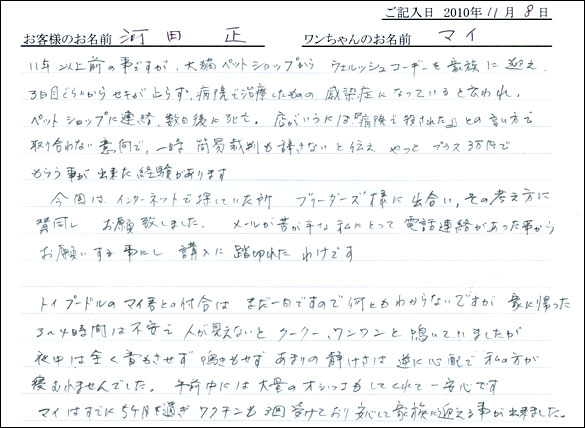 ご記入日 2010年11月8日
お客様のお名前 河田 正 ワンちゃんのお名前 マイ
11年以上前の事ですが、大猫ペットショップから ウェルッシュコーギーを家族に迎え
3日目ぐらいからセキが止らず、病院で治療したものの 感染症になっていると云われ、
ペットショップに連絡、数日後に死亡。店がいうには「病院で殺された」との言い方で
取り合わない意向で、一時 簡易裁判も辞さないと伝え やっと プラス3万円で
もらう事が出来た経験があります
今回は、インターネットで探していた所 ブリーダーズ様に出合い、その考え方に
賛同し お願致しました。 メールが苦が手な私にとって電話連絡があった事から
お願いする事にし 購入に踏切れたわけです
トイプードルのマイ君との付合は まだ一日ですので何ともわからないですが 家に帰った
3〜4時間は不安で人が見えないと クークー、ワンワンと鳴いていましたが
夜中は全く音もさせず 鳴きもせず あまりの静けさは 逆に心配で 私の方が
寝むれませんでした。 午前中には大量のオシッコもしてくれて一安心です
マイはすでに5ヶ月を過ぎ ワクチンも3回受けており安心して家族に迎える事が出来ました。